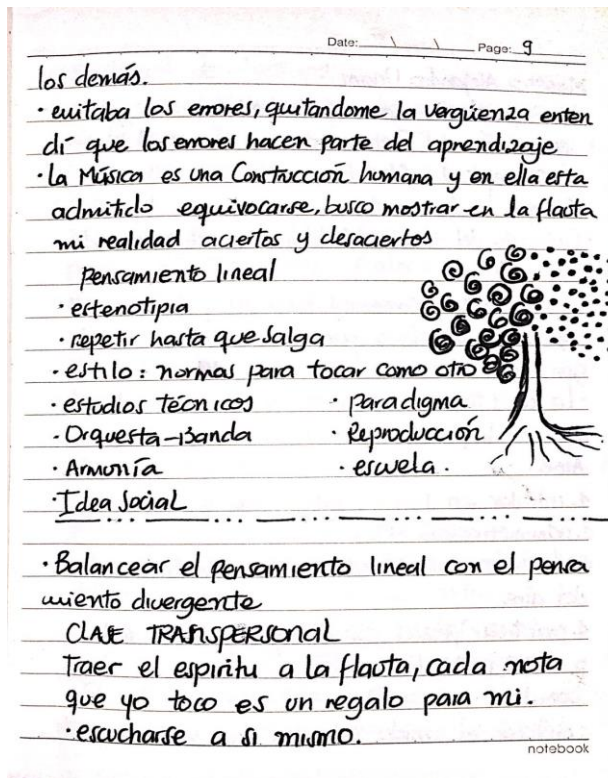 Date: \ \ Page: 9
los demás.
· evitaba los errores, quitandome la vergüenza enten
dí que los errores hacen parte del aprendizaje
· la Música es una Construcción humana y en ella esta
admitido equivocarse, busco mostrar en la flauta
mi realidad aciertos y desaciertos
pensamiento lineal
· estenotipia
· repetir hasta que salga
· estilo: normas para tocar como otro
· estudios técnicos · paradigma
· Orquesta-Banda · Reproducción
· Armonía · escuela.
· Idea Social
· Balancear el pensamiento lineal con el pensa
miento divergente
CLASE TRANSPERSONAL
Traer el espiritu a la flauta, cada nota
que yo toco es un regalo para mi.
· escucharse a si mismo.
notebook